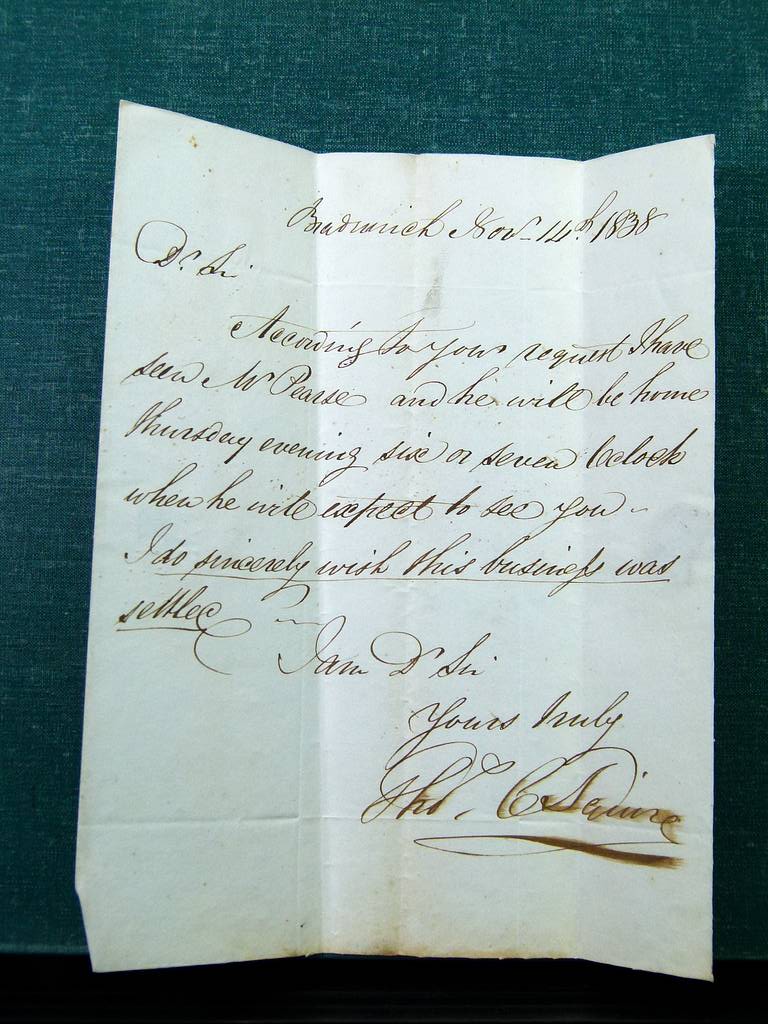 Bradninch Nov. 14th. 1838
Dr. Sir
According to your request I have
seen Mr Pearse and he will be home
thursday evening six or seven Oclock
when he will expect to see you -
I do sincerely wish this business was
settled
I am Dr Sir
Yours truly
Thos. C